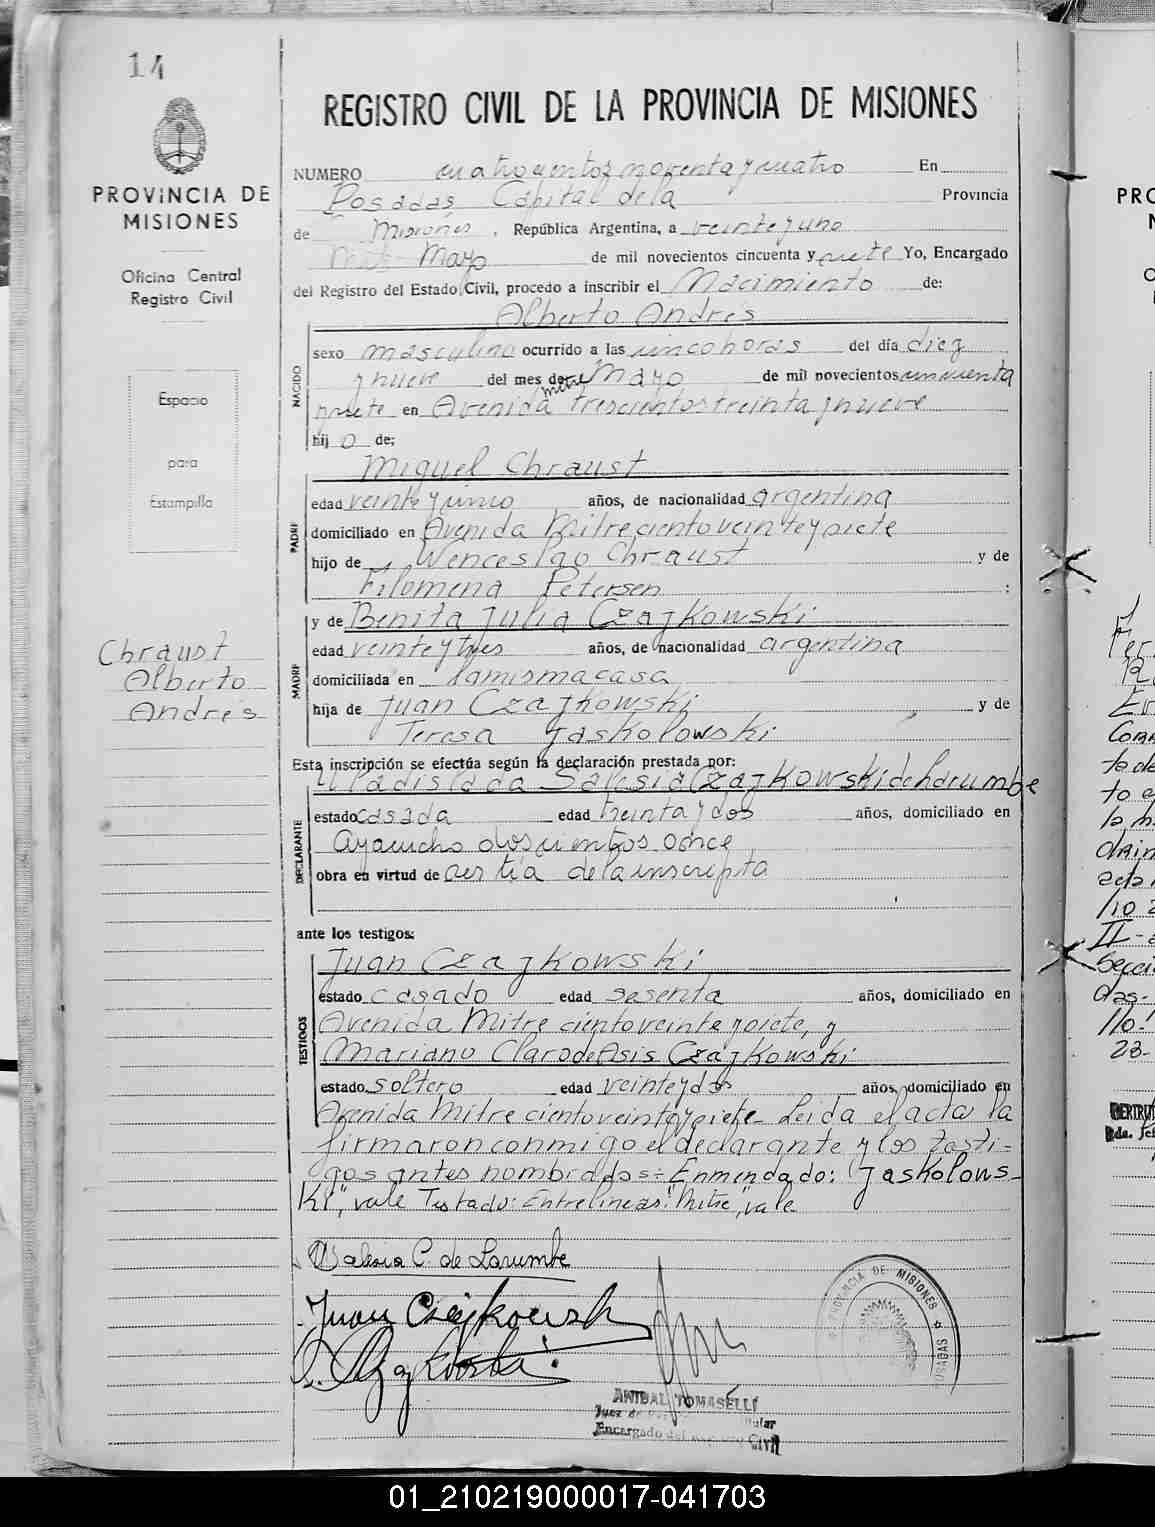 14
REGISTRO CIVIL DE LA PROVINCIA DE MISIONES
PROVINCIA DE
MISIONES
Oficina Central
Registro Civil
Espacio
para
Estampilla
Chraust
Alberto
Andrés
NUMERO cuatrocientos noventa y cuatro En
Posadas Capital de la Provincia
de Misiones, República Argentina, a veinte y uno
Mayo de mil novecientos cincuenta y siete Yo, Encargado
del Registro del Estado Civil, procedo a inscribir el Nacimiento de:
Alberto Andrés
NACIDO
sexo masculino ocurrido a las cinco horas del día diez
y nueve del mes de Mayo de mil novecientos cincuenta
mitre
y siete en Avenida trescientos treinta y nueve
hij o de;
Miguel Chraust
PADRE
edad veinte y cinco años, de nacionalidad argentina
domiciliado en Avenida Mitre ciento veinte y siete
hijo de Wenceslao Chraust y de
Filomena Petersen :
y de Benita Julia Czajkowski
MADRE
edad veinte y tres años, de nacionalidad argentina
domiciliada en la misma casa
hija de Juan Czajkowski y de
Teresa Jaskolowski
Esta inscripción se efectúa según la declaración prestada por:
Uladislada Salesia Czajkowski de Larumbe
DECLARANTE
estado casada edad treinta y dos años, domiciliado en
Ayacucho doscientos once
obra en virtud de ser tia de la inscripta
ante los testigos:
Juan Czajkowski
TESTIGOS
estado casado edad sesenta años, domiciliado en
Avenida Mitre ciento veinte y siete, y
Mariano Claro de Asis Czajkowski
estado soltero edad veinte y dos años, domiciliado en
Avenida Mitre ciento veinte y siete- Leida el acta la
firmaron conmigo el declarante y los testi-
gos antes nombrados= Enmendado: "Jaskolows-
Ki", vale Testado: Entrelineas: "Mitre", vale
Salesia C. de Larumbe
Juan Czajkowski
ANIBAL TOMASELLI
Juez de
Encargado del Registro Civil
PROVINCIA DE MISIONES
POSADAS
01_210219000017-041703